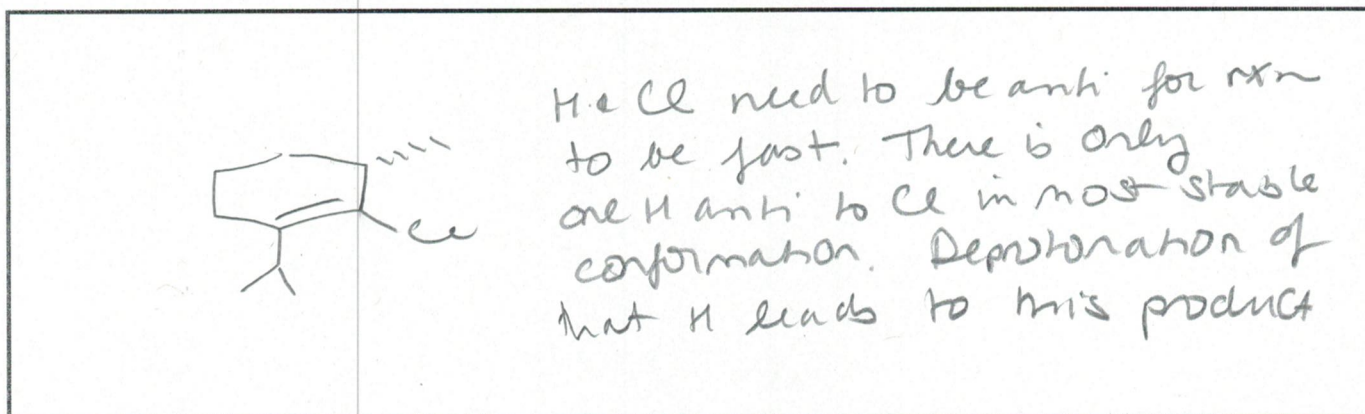 H & Cl need to be anti for rxn
to be fast. There is only
one H anti to Cl in most stable
conformation. Deprotonation of
that H leads to this product
Cl